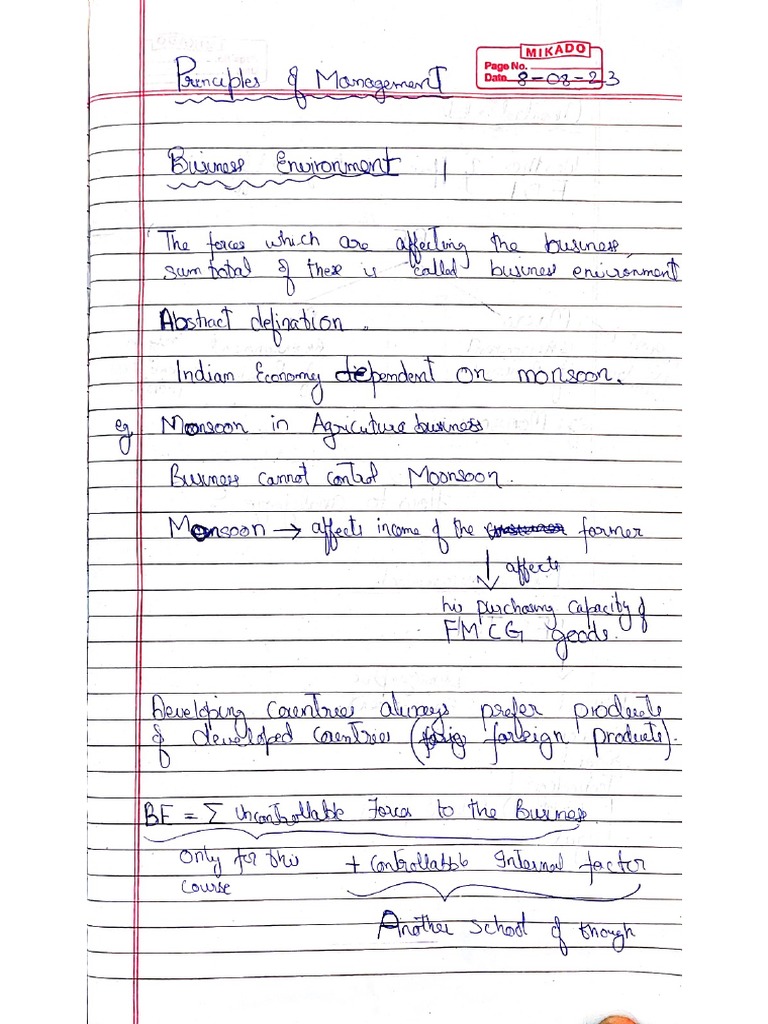 MIKADO
Page No.
Date 8-08-23
Principles of Management
Business Environment
The forces which are affecting the business
sum total of these is called business environment
Abstract defination.
Indian Economy dependent on monsoon.
eg Monsoon in Agriculture business
Business cannot control Moonsoon.
Monsoon → affects income of the customer farmer
↓ affects
his purchasing capacity of
FMCG goods.
Developing Countries always prefer products
of developed countries ( foreign products).
BE = Σ Uncontrollable Forces to the Business
Only for this + Controllable Internal factor
course
Another School of though